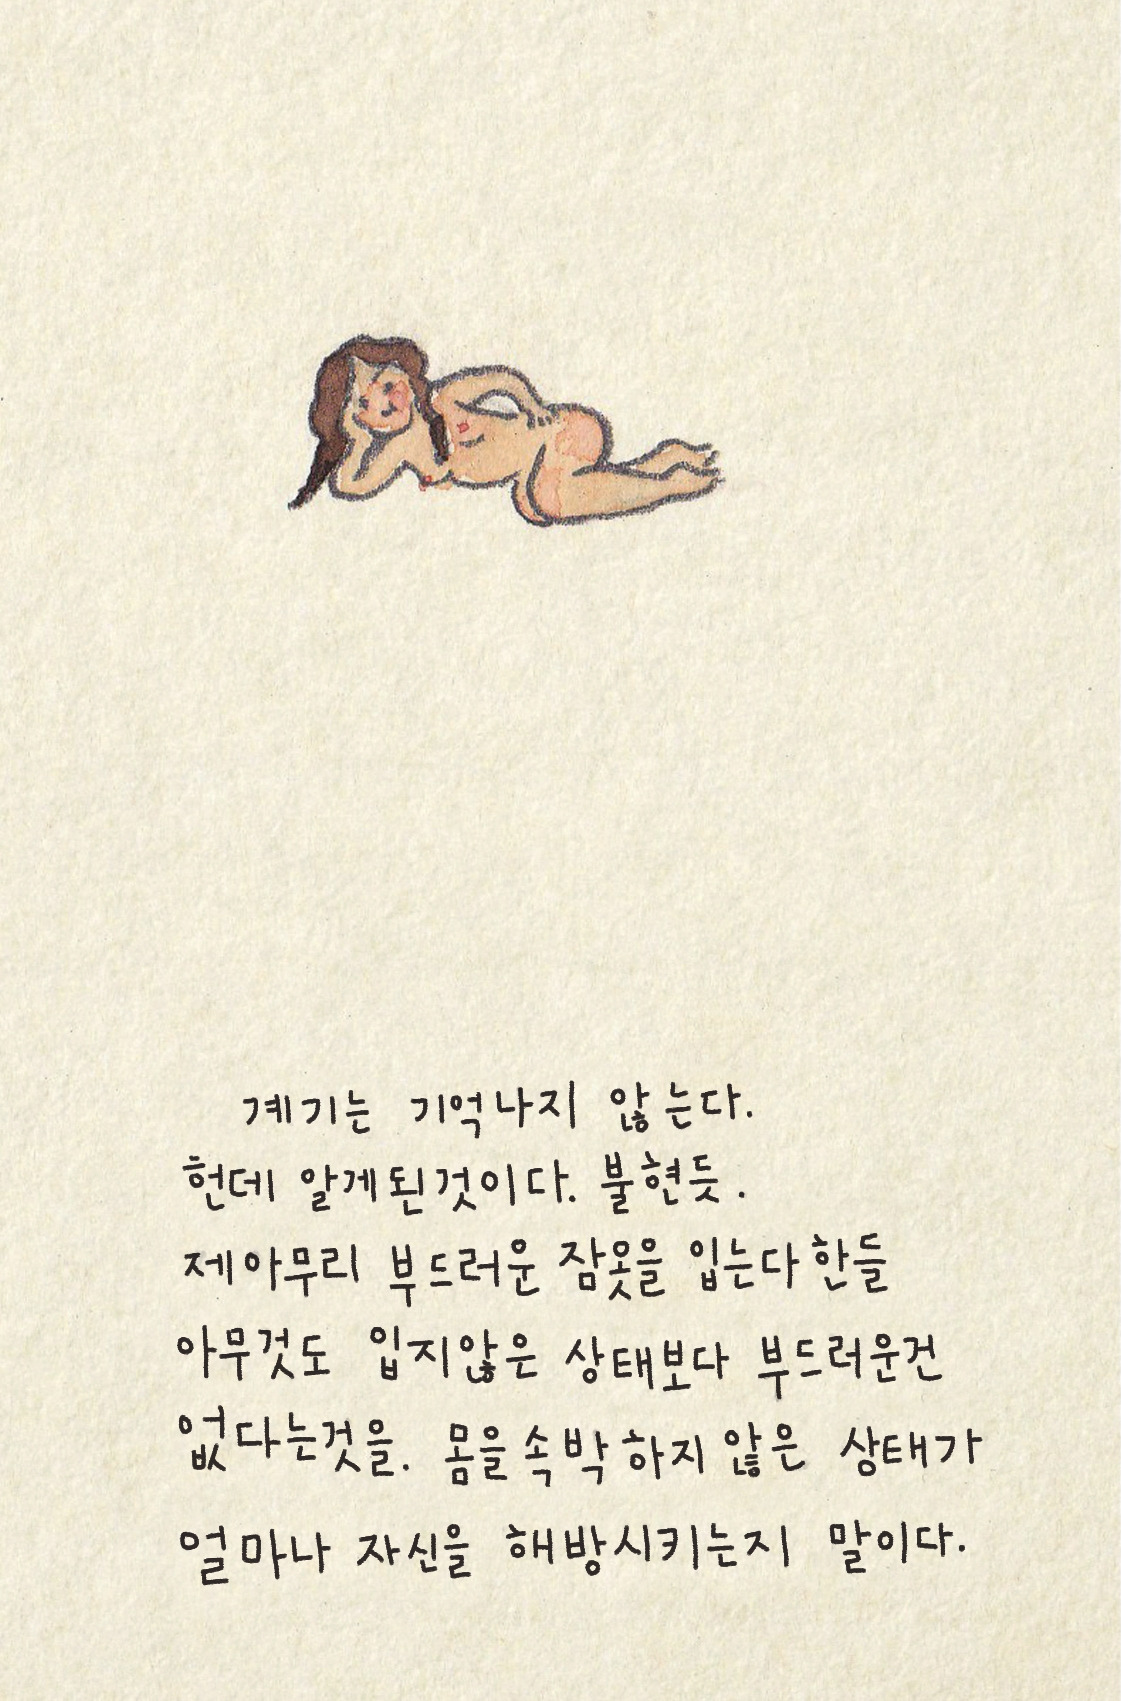 계기는 기억나지 않는다.
헌데 알게된것이다. 불현듯.
제아무리 부드러운 잠옷을 입는다한들
아무것도 입지않은 상태보다 부드러운건
없다는것을. 몸을 속박하지 않은 상태가
얼마나 자신을 해방시키는지 말이다.